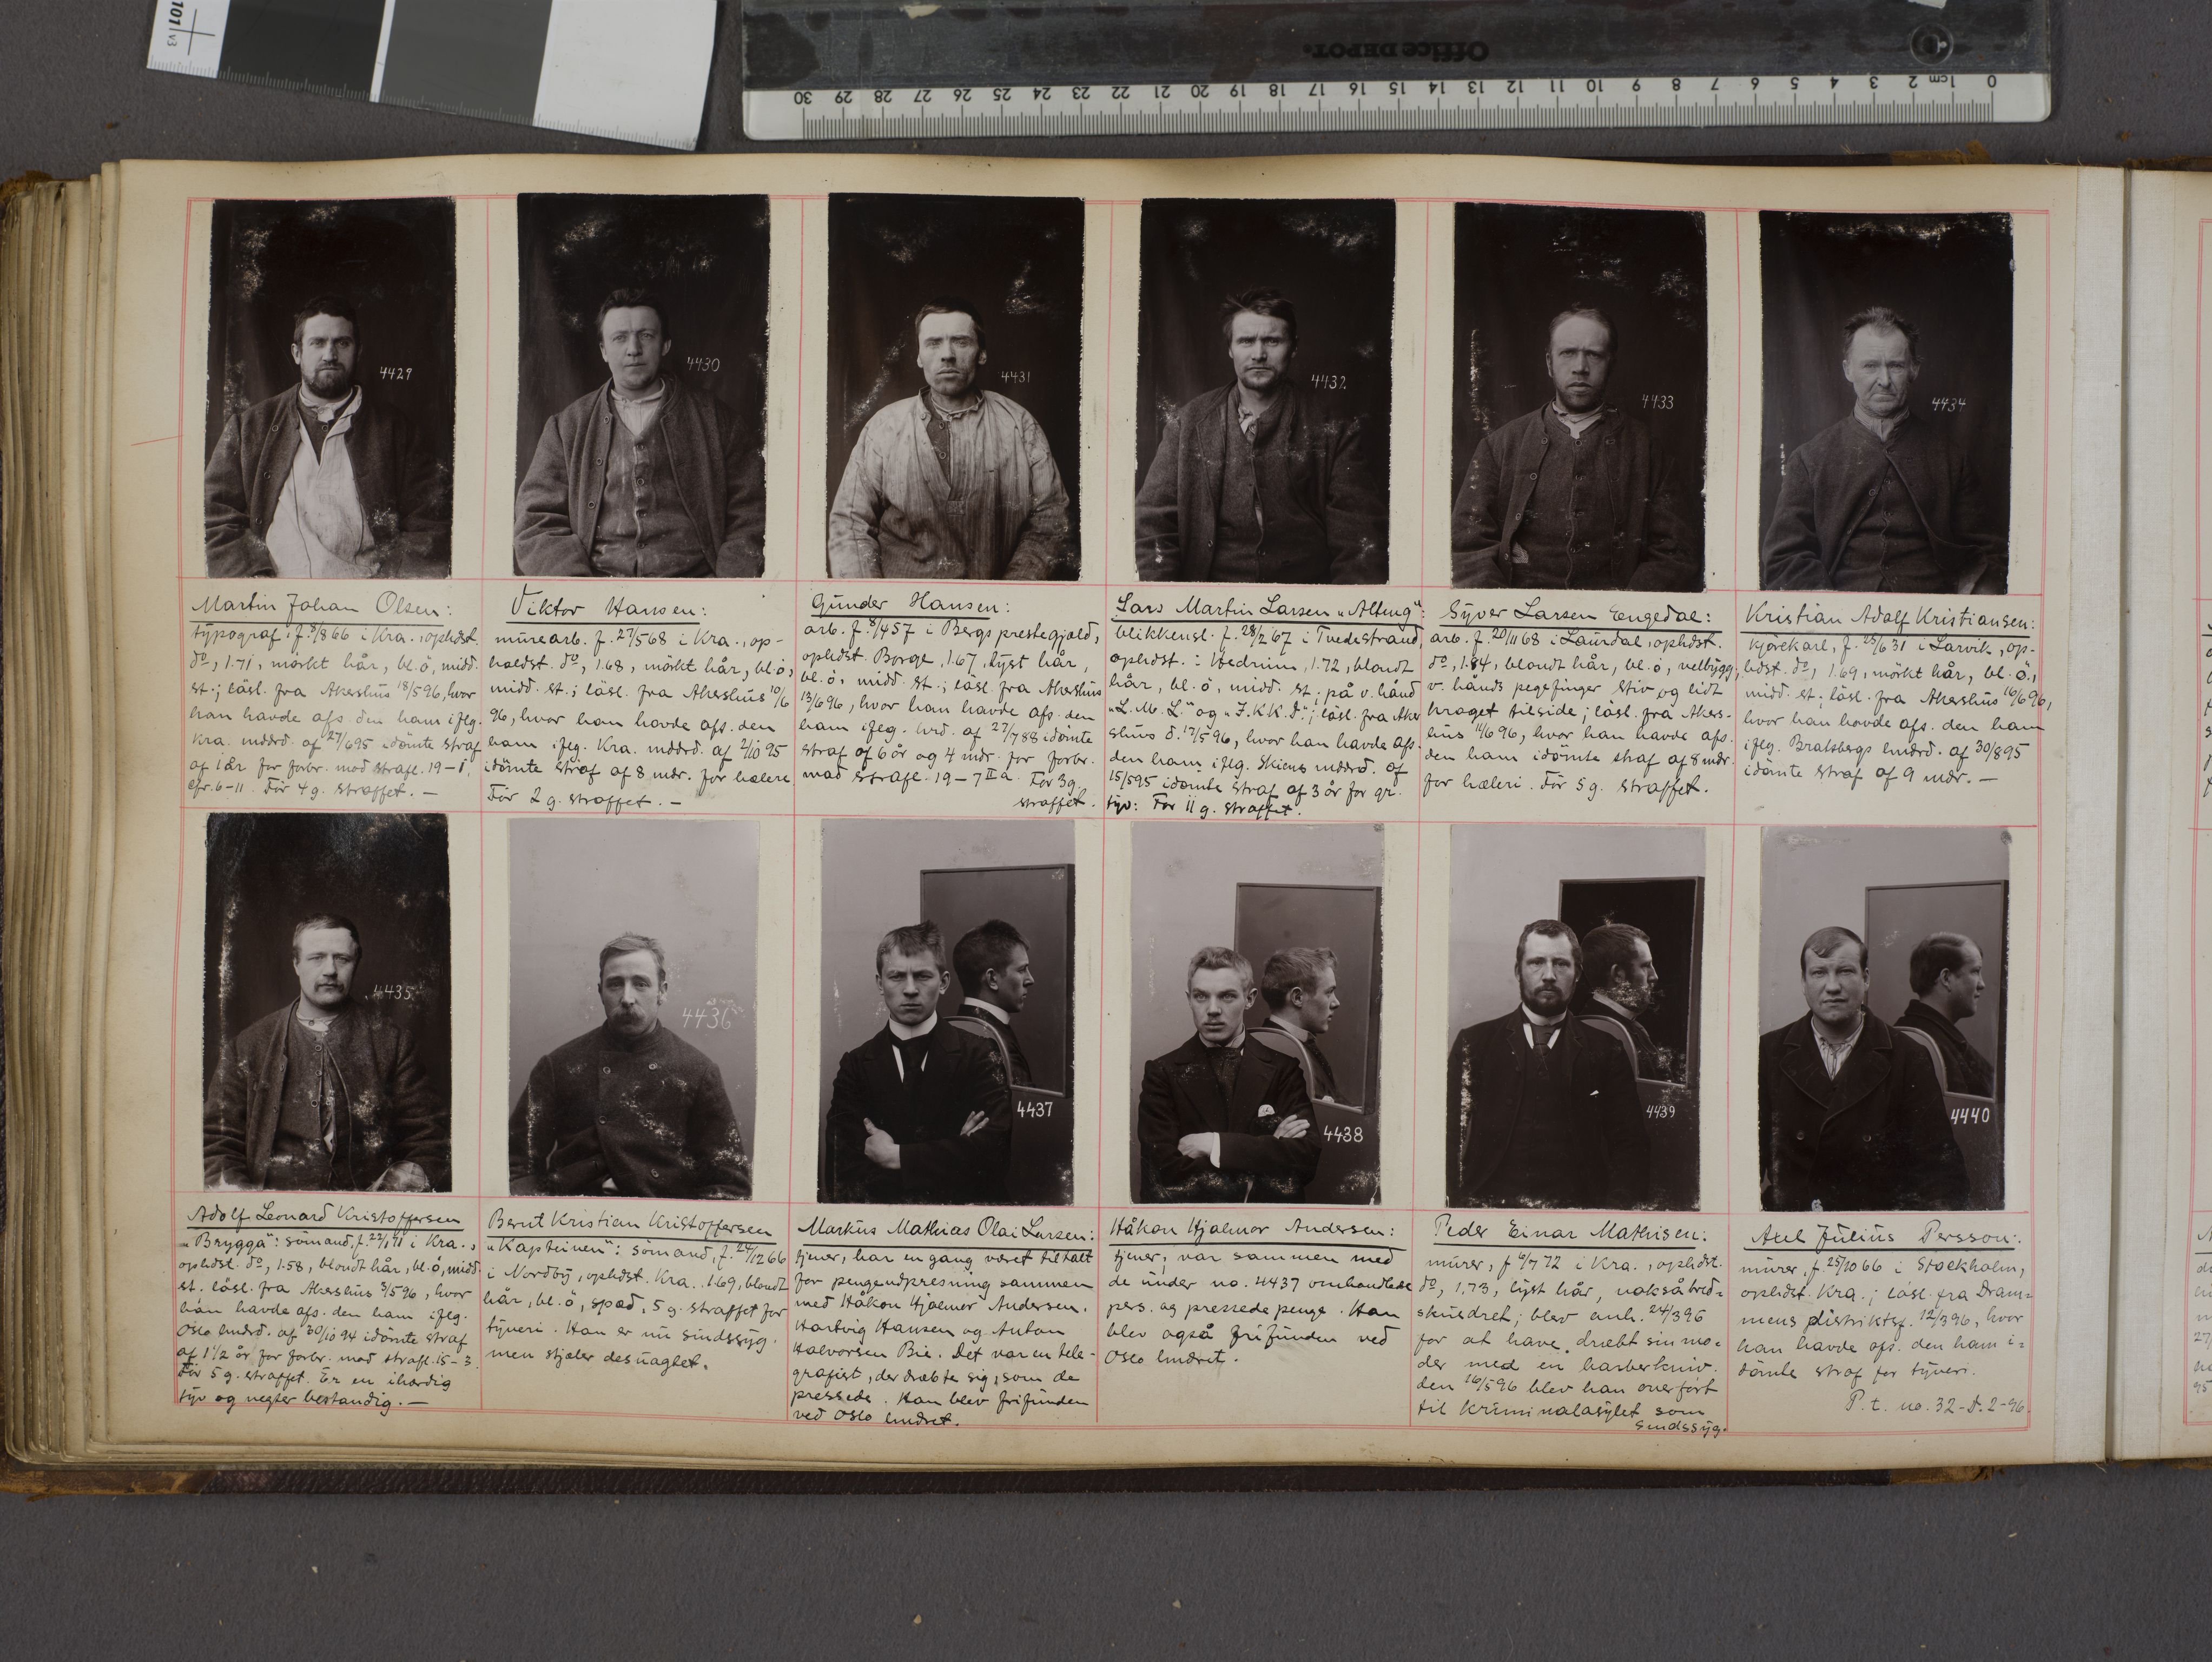 101 v3
Office DEPOT.
0 1cm 2 3 4 5 6 7 8 9 10 11 12 13 14 15 16 17 18 19 20 21 22 23 24 25 26 27 28 29 30
4429
4430
4431
4432
4433
4434
Martin Johan Olsen:
typograf, f. 5/8 66 i Kra., ophdst.
do, 1.71, mörkt hår, bl. ö, midd.
st.; lösl. fra Akershus 18/5 96, hvor
han havde afs. den ham iflg.
Kra. meddrd. af 27/6 95 idömte straf
af 1 år for forbr. mod strafl. 19-1,
cfr. 6-11. För 4 g. straffet. —
Viktor Hansen:
murearb. f. 27/5 68 i Kra., op-
holdst. do, 1.68, mörkt hår, bl. ö,
midd. st.; lösl. fra Akershus 10/6
96, hvor han havde afs. den
ham iflg. Kra. mddrd. af 2/10 95
idömte straf af 8 mdr. for hæleri.
För 2 g. straffet. —
Gunder Hansen:
arb. f. 8/4 57 i Bergs prestegjæld,
ophdst. Borge, 1.67, lyst hår,
bl. ö. midd. st.; lösl. fra Akershus
13/6 96, hvor han havde afs. den
ham iflg. hrd. af 27/7 88 idömte
straf af 6 år og 4 mdr. for forbr.
mod strafl. 19-7 II a. För 3 g.
straffet.
Lars Martin Larsen "Alteng":
blikkensl. f. 28/2 67 i Tvedestrand,
ophdst.: Hedrum, 1.72, blondt
hår, bl. ö, midd. st.; på v. hånd
"L. M. L." og "J. K K. D."; lösl. fra Aker
shus d. 17/5 96, hvor han havde afs.
den ham iflg. Skiens mddrd. af
15/5 95 idömte straf af 3 år for gr.
tyv: För 11 g. straffet.
Syver Larsen Engedal:
arb. f. 20/11 68 i Laurdal, ophdst.
do, 1.84, blondt hår, bl. ö, velbygg,
v. hånds pegefinger stiv og lidt
kroget tilside; lösl. fra Akers-
hus 11/6 96, hvor han havde afs.
den ham idömte straf af 8 mdr.
for hæleri. För 5 g. straffet.
Kristian Adolf Kristiansen:
kjörekarl, f. 25/6 31 i Larvik, op-
hdst. do, 1.69, mörkt hår, bl. ö.,
midd. st.; lösl. fra Akershus 16/6 96,
hvor han havde afs. den ham
iflg. Bratsbergs lmdrd. af 30/8 95
idömte straf af 9 mdr. —
4435
4436
4437
4438
4439
4440
Adolf Leonard Kristoffersen
"Brygga": sömand, f. 22/1 71 i Kra.,
ophdst. do, 1.58, blondt hår, bl. ö, midd.
st. lösl. fra Akershus 3/5 96, hvor
han havde afs. den ham iflg.
Oslo lmdrd. af 30/10 94 idömte straf
af 1 1/2 år for forbr. mod strafl. 15-3.
För 5 g. straffet. Er en ihærdig
tyv og negter bestandig. —
Bernt Kristian Kristoffersen
"Kapteinen": sömand, f. 24/12 66
i Nordby, ophdst. Kra. 1.69, blondt
hår, bl. ö, spæd, 5 g. straffet for
tyveri. Han er nu sindssyg.
men stjæler desuagtet.
Markus Mathias Olai Larsen:
tjener, har en gang været tiltalt
for pengeudpresning sammen
med Håkon Hjalmer Andersen.
Hartvig Hansen og Anton
Halvorsen Bie. Det var en tele-
grafist, der dræbte sig, som de
pressede. Han blev frifunden
ved Oslo lmdret.
Håkon Hjalmer Andersen:
tjener, var sammen med
de under no. 4437 omhandlede
pers. og pressede penge. Han
blev også frifunden ved
Oslo lmdret.
Peder Einar Mathisen:
murer, f. 6/7 72 i Kra., ophdst.
do, 1.73, lyst hår, nokså bred-
skuldret; blev anh. 24/3 96
for at have dræbt sin mo-
der med en barberkniv.
den 16/5 96 blev han overfört
til Kriminalasylet som
sindssyg.
Axel Julius Persson:
murer, f. 25/10 66 i Stockholm,
ophdst. Kra.; lösl. fra Dram-
mens distriktsf. 12/3 96, hvor
han havde afs. den ham i-
dömte straf for tyveri.
P. t. no. 32 - d. 2-96.